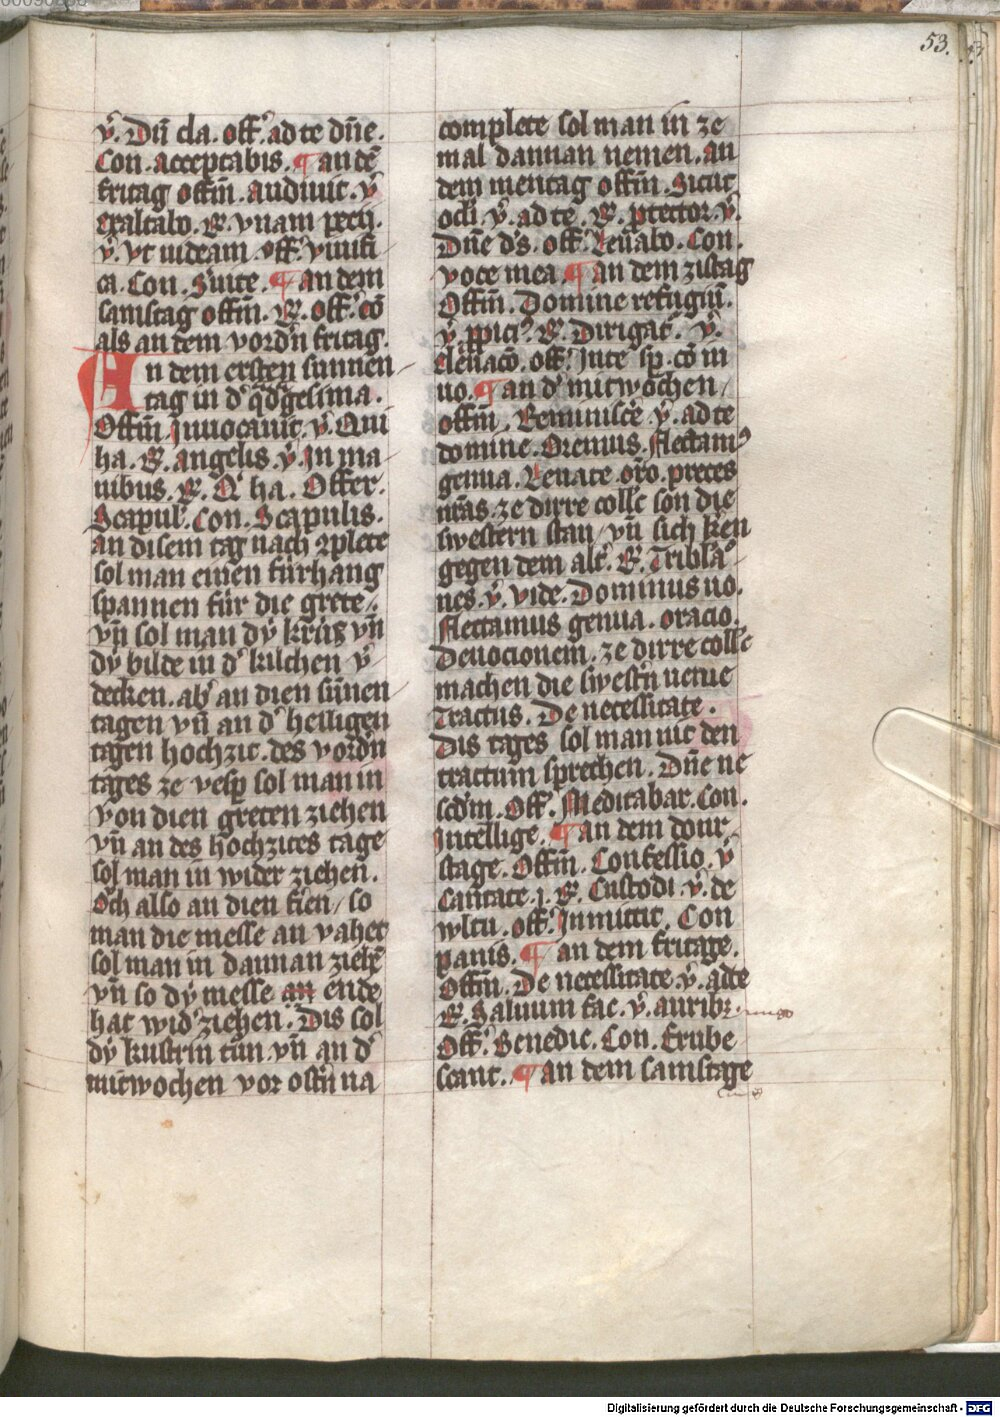 53.
v̾. Dū cla. off̾. ad te dn̄e.
Con. acceptabis. ¶ an dē
fritag offm̄. Audiuit. v̾
exaltabo. R̾. vnam pecij.
v̾. vt uideam. off̾. viuifi
ca. Con. Seruite. ¶ an dem
samstag offm̄. R̾. off̾. cō
als an dem vordn̄ fritag.
An dem ersten sunnen
tag in d̾ q̄dgesima.
Offm̄. Inuocauit. v̾. Qui
ha. R̾. angelis. v̾. In ma
nibus. R̾. Q̄ ha. Offer.
Scapul̾. Con. Scapulis.
an disem tag nach ꝯplete
sol man einen fürhang
spannen für die grete.
vn̄ sol man dÿ krütz vn̄
dÿ bilde in d̾ kilchen v̾
decken. ab̾ an dien sūnen
tagen vn̄ an d̾ heiligen
tagen hochzit. des vordn̄
tages ze vesp̄ sol man in
von dien greten ziehen
vn̄ an des hochzites tage
sol man in wider ziehen.
Och also an dien firen / so
man die messe an vahet
sol man in dannan ziehē
vn̄ so dÿ messe an ende
hat wid̾ ziehen. Dis sol
dÿ kustrin tūn vn̄ an d̾
mitwochen vor ostn̄ na
complete sol man in ze
mal dannan nemen. an
dem mentag offm̄. Sicut
ocl̄i v̾. ad te. R̾. ꝓtector. v̾.
Dn̄e d̾s. off̾. Leuabo. Con.
voce mea. ¶ an dem zistag
Offm̄. Domine refugiū.
v̾. ꝓpici⁹. R̾. Dirigat̾. v̾.
Eleuacō. off̾. Jn te sp̄. cō in
uo. ¶ an d̾ mitwochen /
offm̄. Reminisc̄e v̾. ad te
domine. Oremus. Flectam⁹
genua. Leuate. or̄o. preces
nr̄as. ze dirre coll̄e son die
swestern stan / vn̄ sich ken
gegen dem alt̾. R̾. Tribl̄a
nes. v̾. vide. Dominus uo.
Flectamus genua. oracio.
Deuocionem. ze dirre coll̄e
machen die swestn̄ uenie
Tractus. De necessitate.
Dis tages sol man nit den
tractum sprechen. Dn̄e ne
scd̄m. Off̾. Meditabar. Con.
Intellige. ¶ an dem dour
stage. Offm̄. Confessio. v̾
Cantate. j. R̾. Custodi. v̾. de
wltu. off̾. Inmittit. Con
panis. ¶ an dem fritage.
Offm̄. De necessitate. v̾. ad te
R̾. Saluum fac. v̾. aurib⁹.
Off̾. Benedic. Con. Erube
scant. ¶ an dem samstage
Digitalisierung gefördert durch die Deutsche Forschungsgemeinschaft - DFG